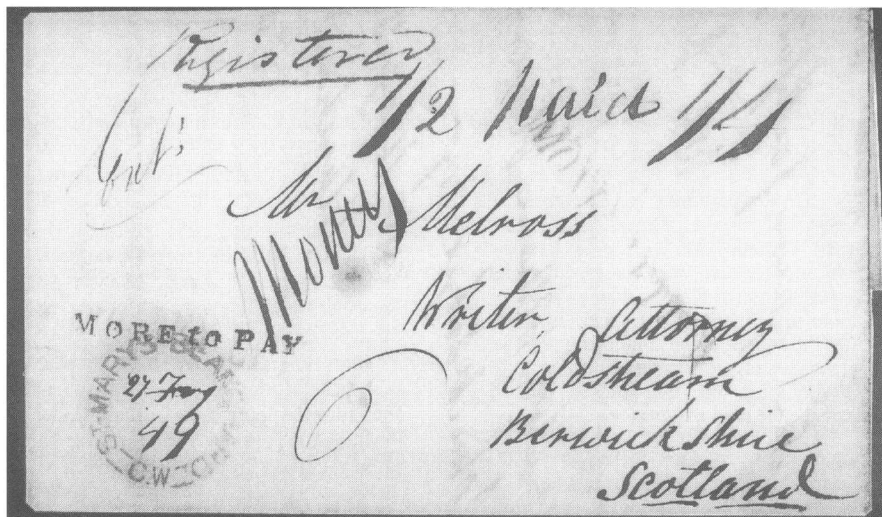 Registered
1/2 Paid 1/4
Ent'd
Mr Melross
Money
Writer, Attorney
Coldstream
Berwickshire
Scotland
MORE to PAY
ST. MARY'S
27
49
C.W.